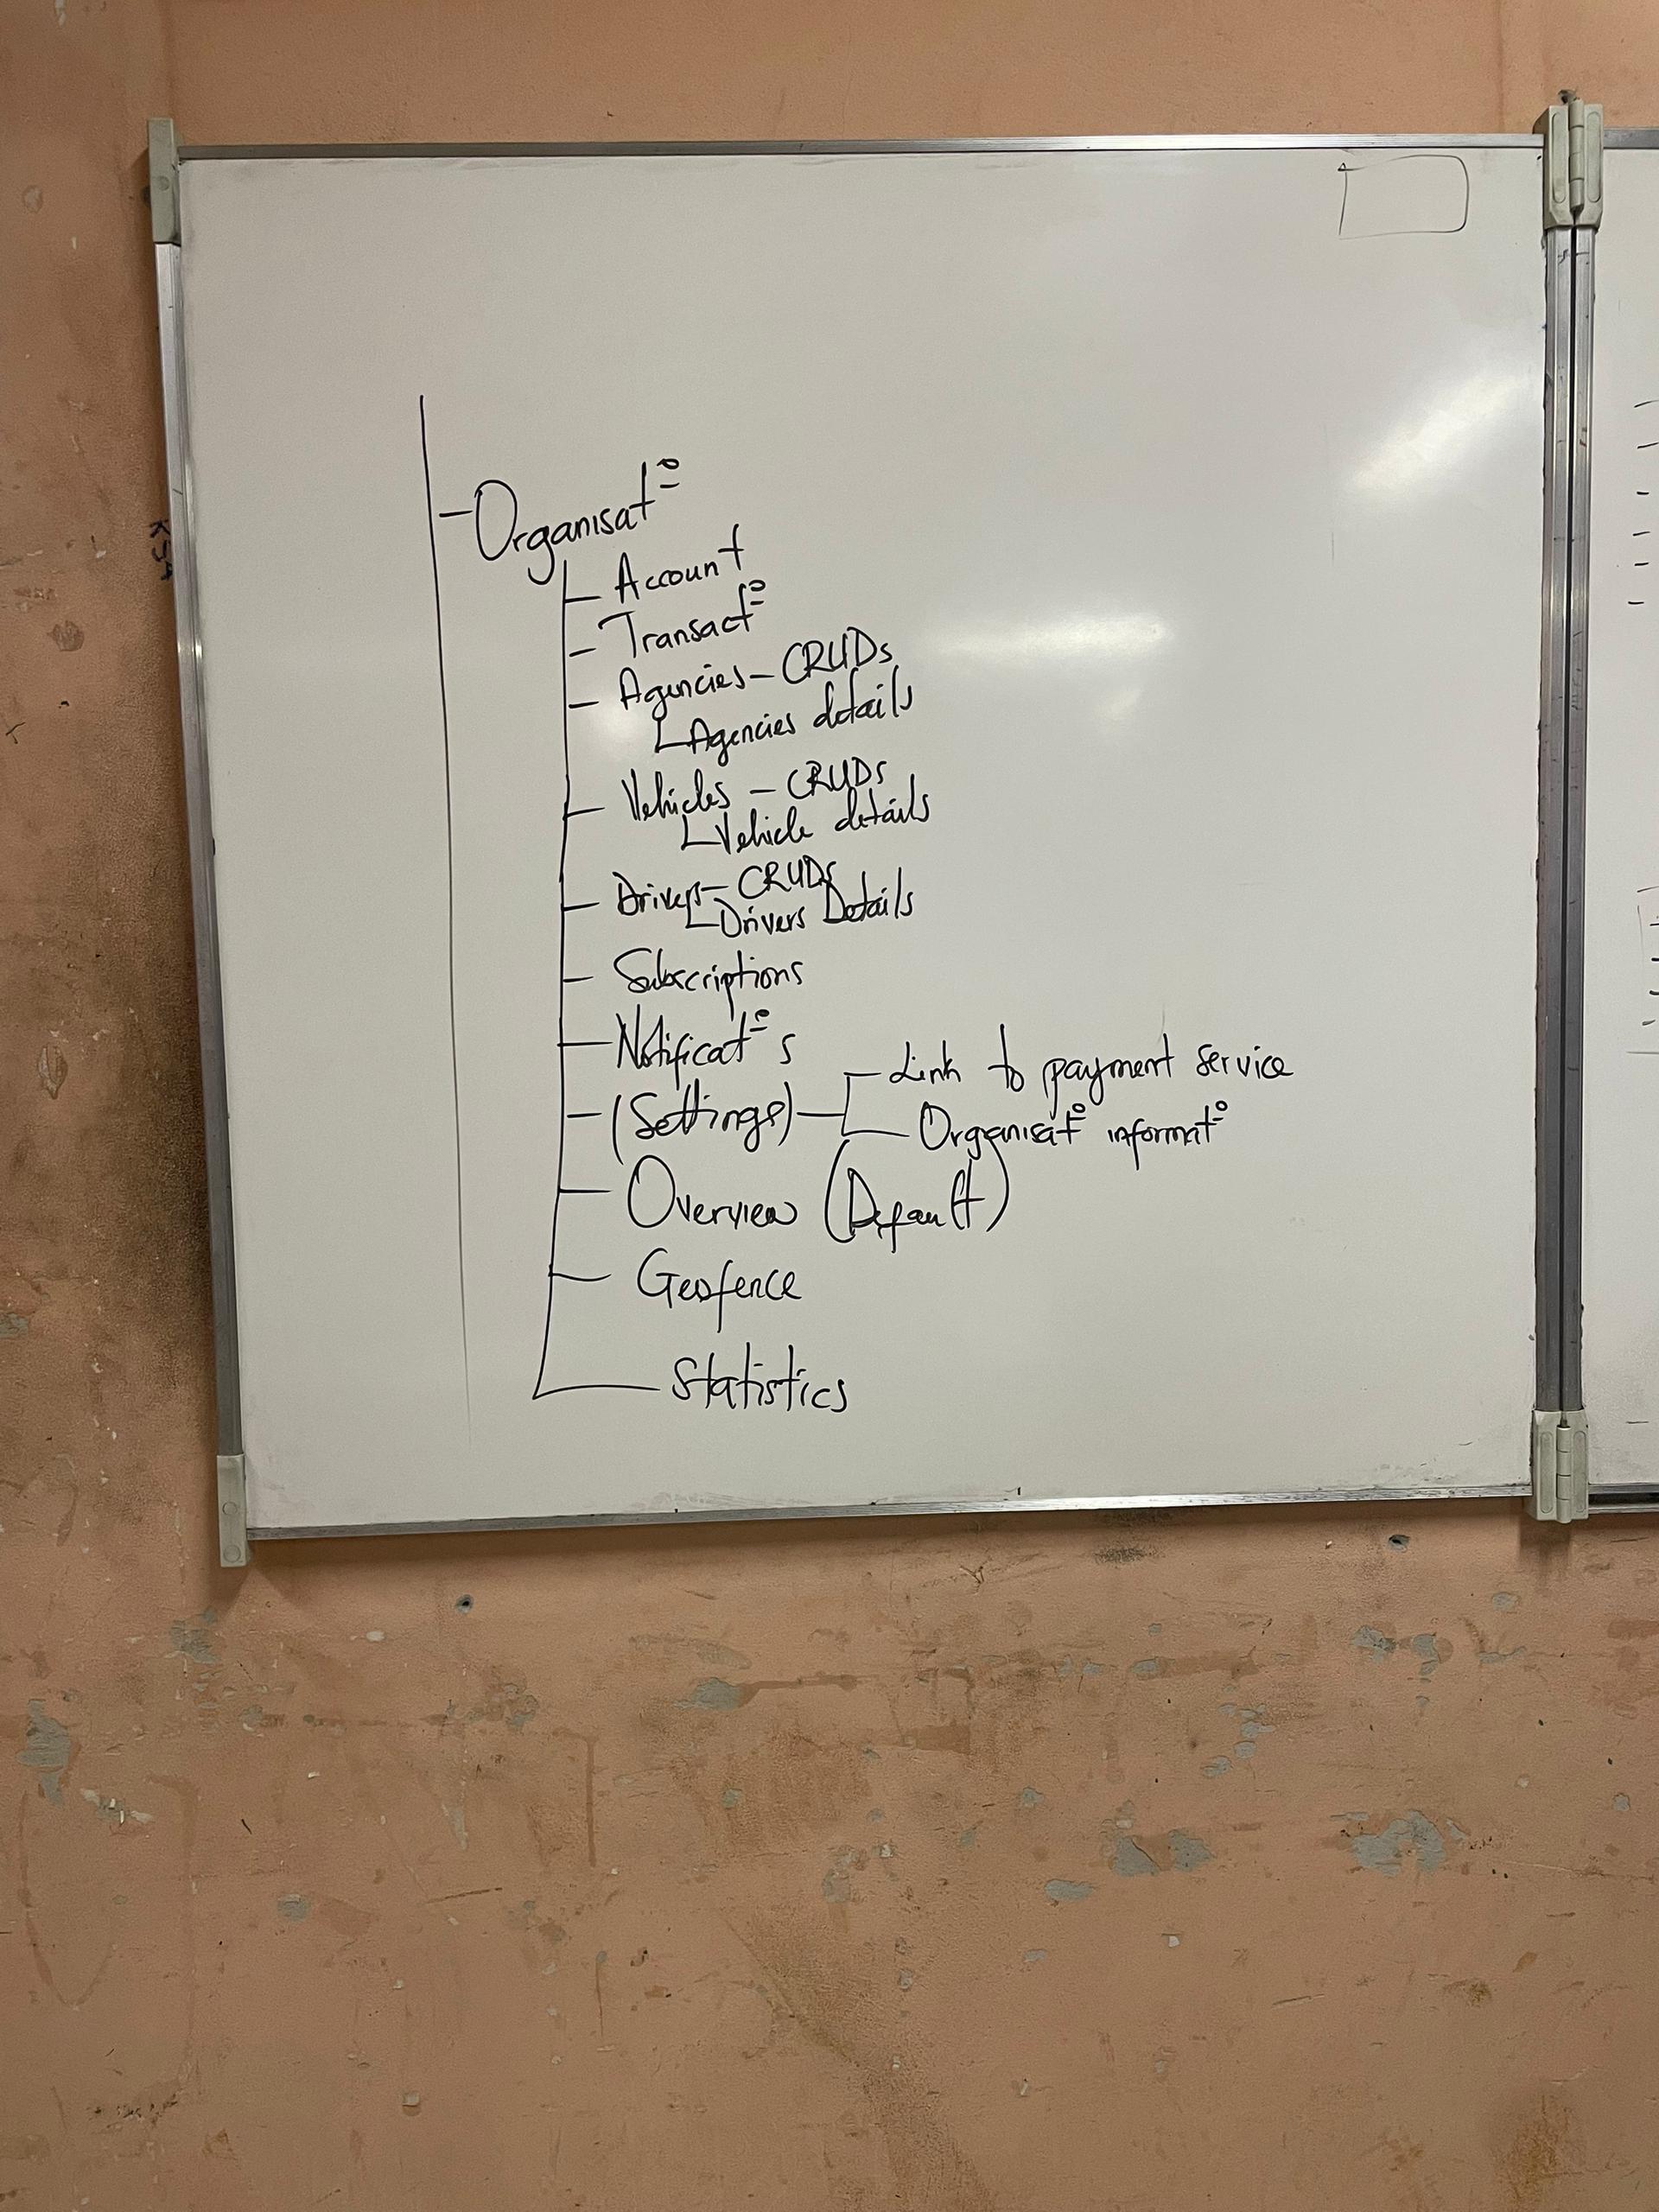 Organisatº
Account
Transactº
Agencies - CRUDs
Agencies details
Vehicles - CRUDs
Vehicle details
Drivers - CRUDs
Drivers Details
Subscriptions
Notificatº s
(Settings)
Link to payment service
Organisatº informatº
Overview (Default)
Geofence
Statistics